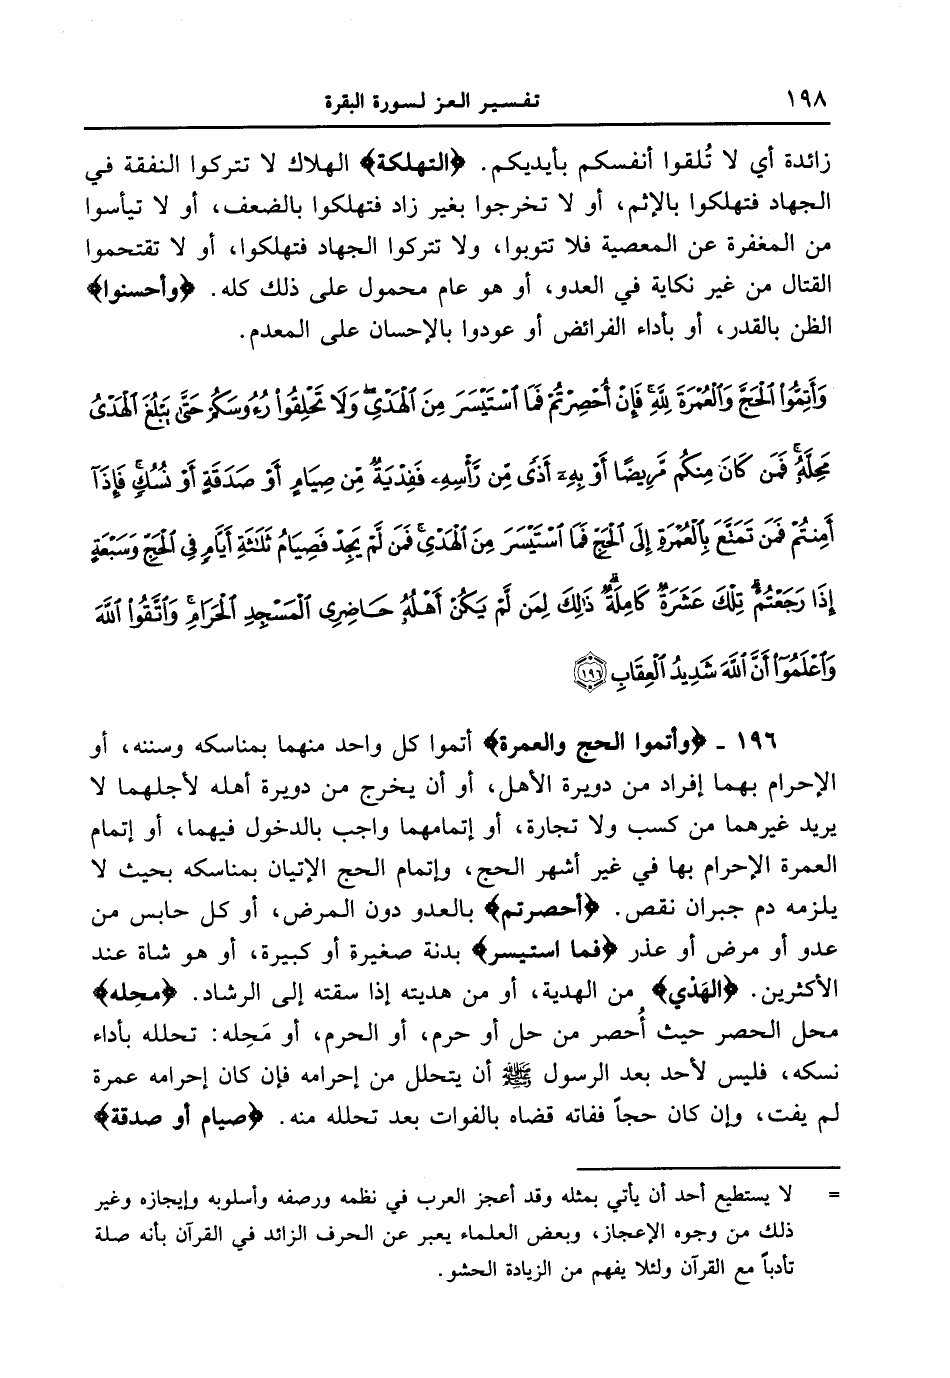 ١٩٨ تفسير العز لسورة البقرة
زائدة أي لا تُلقوا أنفسكم بأيديكم. ﴿التهلكة﴾ الهلاك لا تتركوا النفقة في
الجهاد فتهلكوا بالإثم، أو لا تخرجوا بغير زاد فتهلكوا بالضعف، أو لا تيأسوا
من المغفرة عن المعصية فلا تتوبوا، ولا تتركوا الجهاد فتهلكوا، أو لا تقتحموا
القتال من غير نكاية في العدو، أو هو عام محمول على ذلك كله. ﴿وأحسنوا﴾
الظن بالقدر، أو بأداء الفرائض أو عودوا بالإحسان على المعدم.
وَأَتِمُّوا۟ ٱلْحَجَّ وَٱلْعُمْرَةَ لِلَّهِۚ فَإِنْ أُحْصِرْتُمْ فَمَا ٱسْتَيْسَرَ مِنَ ٱلْهَدْىِۖ وَلَا تَحْلِقُوا۟ رُءُوسَكُمْ حَتَّىٰ يَبْلُغَ ٱلْهَدْىُ
مَحِلَّهُۥۚ فَمَن كَانَ مِنكُم مَّرِيضًا أَوْ بِهِۦٓ أَذًى مِّن رَّأْسِهِۦ فَفِدْيَةٌ مِّن صِيَامٍ أَوْ صَدَقَةٍ أَوْ نُسُكٍۚ فَإِذَآ
أَمِنتُمْ فَمَن تَمَتَّعَ بِٱلْعُمْرَةِ إِلَى ٱلْحَجِّ فَمَا ٱسْتَيْسَرَ مِنَ ٱلْهَدْىِۚ فَمَن لَّمْ يَجِدْ فَصِيَامُ ثَلَٰثَةِ أَيَّامٍ فِى ٱلْحَجِّ وَسَبْعَةٍ
إِذَا رَجَعْتُمْۗ تِلْكَ عَشَرَةٌ كَامِلَةٌۗ ذَٰلِكَ لِمَن لَّمْ يَكُنْ أَهْلُهُۥ حَاضِرِى ٱلْمَسْجِدِ ٱلْحَرَامِۚ وَٱتَّقُوا۟ ٱللَّهَ
وَٱعْلَمُوٓا۟ أَنَّ ٱللَّهَ شَدِيدُ ٱلْعِقَابِ ١٩٦
١٩٦ - ﴿وأتموا الحج والعمرة﴾ أتموا كل واحد منهما بمناسكه وسننه، أو
الإحرام بهما إفراد من دويرة الأهل، أو أن يخرج من دويرة أهله لأجلهما لا
يريد غيرهما من كسب ولا تجارة، أو إتمامهما واجب بالدخول فيهما، أو إتمام
العمرة الإحرام بها في غير أشهر الحج، وإتمام الحج الإتيان بمناسكه بحيث لا
يلزمه دم جبران نقص. ﴿أحصرتم﴾ بالعدو دون المرض، أو كل حابس من
عدو أو مرض أو عذر ﴿فما استيسر﴾ بدنة صغيرة أو كبيرة، أو هو شاة عند
الأكثرين. ﴿الهَدْي﴾ من الهدية، أو من هديته إذا سقته إلى الرشاد. ﴿محله﴾
محل الحصر حيث أُحصر من حل أو حرم، أو الحرم، أو مَحِله: تحلله بأداء
نسكه، فليس لأحد بعد الرسول ﷺ أن يتحلل من إحرامه فإن كان إحرامه عمرة
لم يفت، وإن كان حجاً ففاته قضاه بالفوات بعد تحلله منه. ﴿صيام أو صدقة﴾
= لا يستطيع أحد أن يأتي بمثله وقد أعجز العرب في نظمه ورصفه وأسلوبه وإيجازه وغير
ذلك من وجوه الإعجاز، وبعض العلماء يعبر عن الحرف الزائد في القرآن بأنه صلة
تأدباً مع القرآن ولئلا يفهم من الزيادة الحشو.